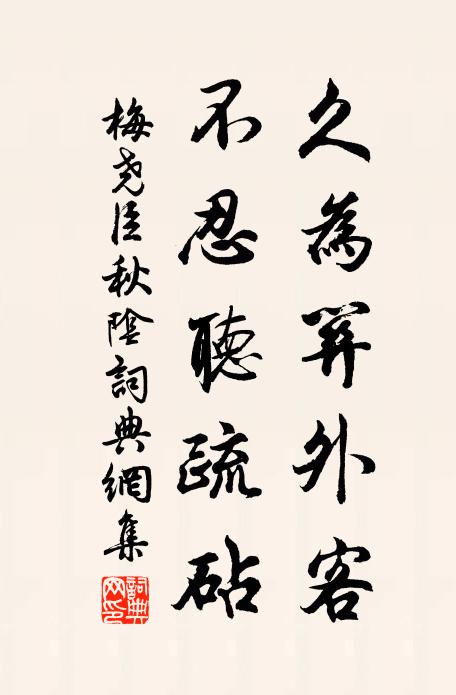 久為關外客
不忍聽疏砧
梅堯臣秋陰詞典網集
詞典网印